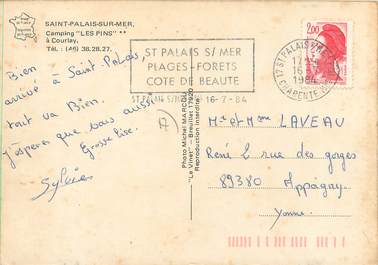 SAINT-PALAIS-SUR-MER,
Camping "LES PINS" **
à Courlay,
Tél. : (46) 38.28.27.
Bien
arrivé à Saint-Palais
tout va Bien.
j'espère que vous aussi
Grosse bise.
Sylvie
ST PALAIS S/ MER
PLAGES-FORETS
COTE DE BEAUTE
ST PALAIS S/MER
16-7-84
17 ST PALAIS S/MER
16
1984
CHARENTE-MME
2,00
Photo Michel MARCOU
"Le Vinet" - Breuillet - 17920
Reproduction interdite
Mr et Mme LAVEAU
René 6 rue des gorges
89380 Appoigny
Yonne.